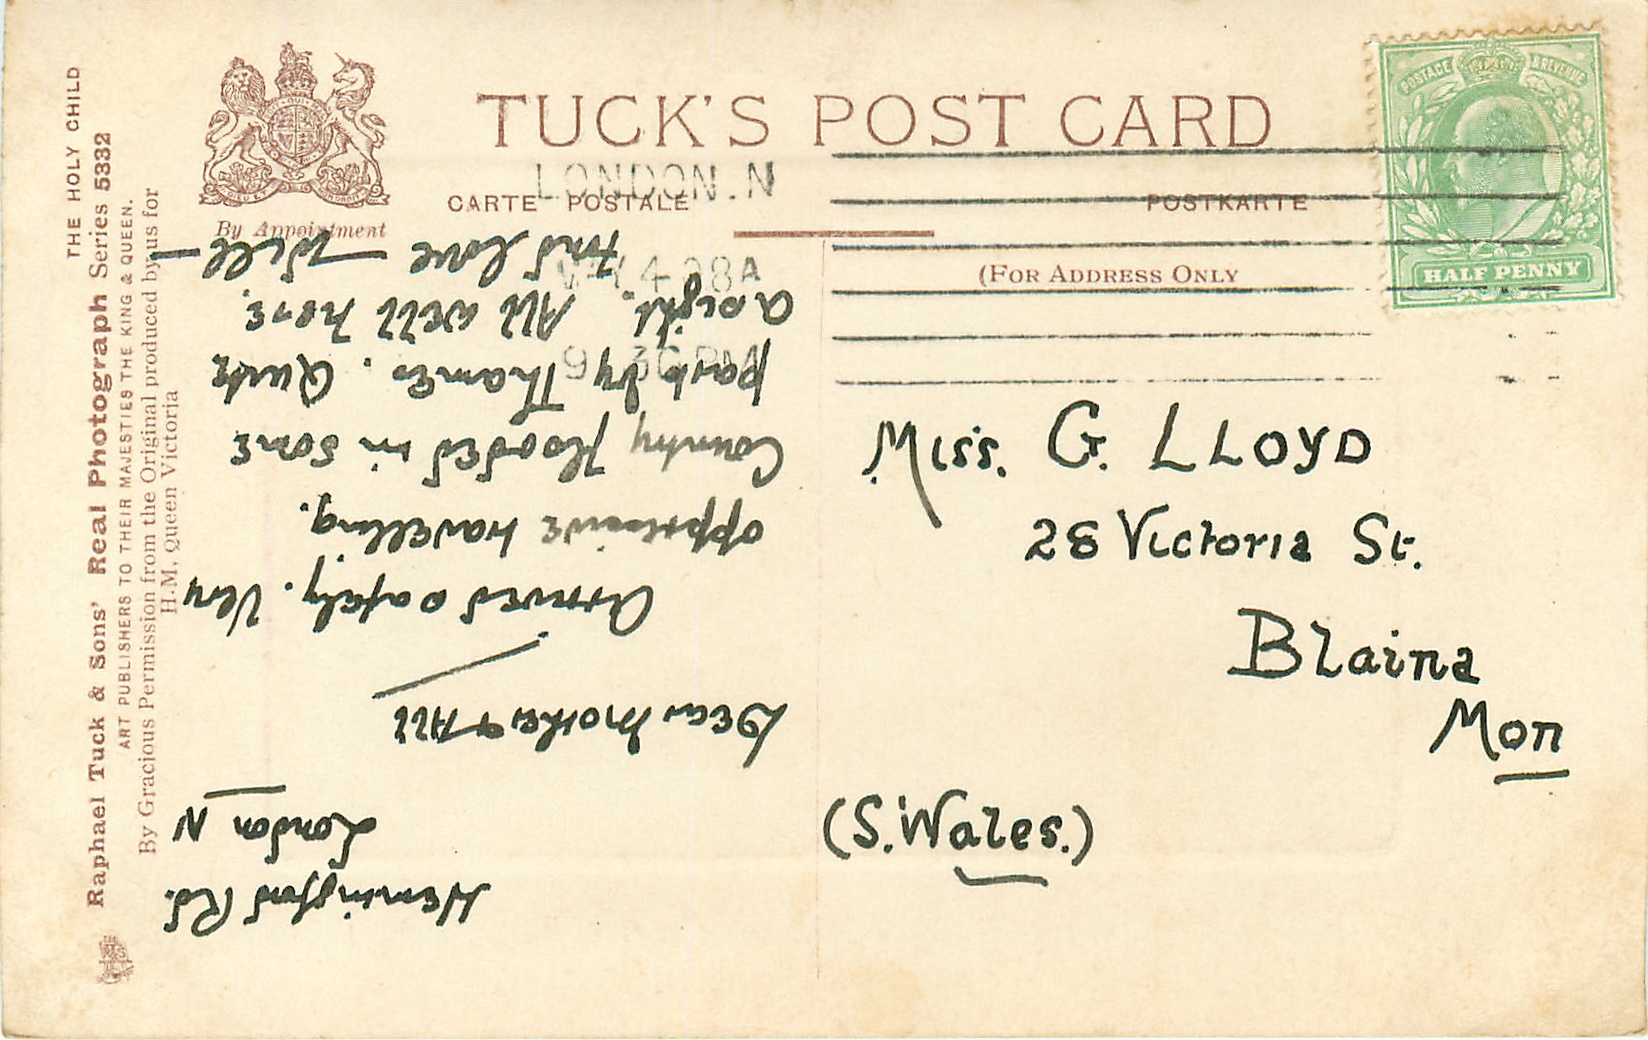 THE HOLY CHILD
Raphael Tuck & Sons' Real Photograph Series 5332
ART PUBLISHERS TO THEIR MAJESTIES THE KING & QUEEN.
By Gracious Permission from the Original produced by us for
H.M. Queen Victoria
By Appointment
TUCK'S POST CARD
CARTE POSTALE
POSTKARTE
(FOR ADDRESS ONLY
LONDON.N
MAY 4 08A
9 30 PM
POSTAGE & REVENUE
HALF PENNY
Miss. G. LLOYD
28 Victoria St.
Blaina
Mon
(S. Wales.)
Hemingford Rd.
London N
Dear Mother & All
Arrived safely. Very
oppressive travelling.
Country flooded in some
parts by Thames. Quite
a sight. All well here.
Fd love — Will —